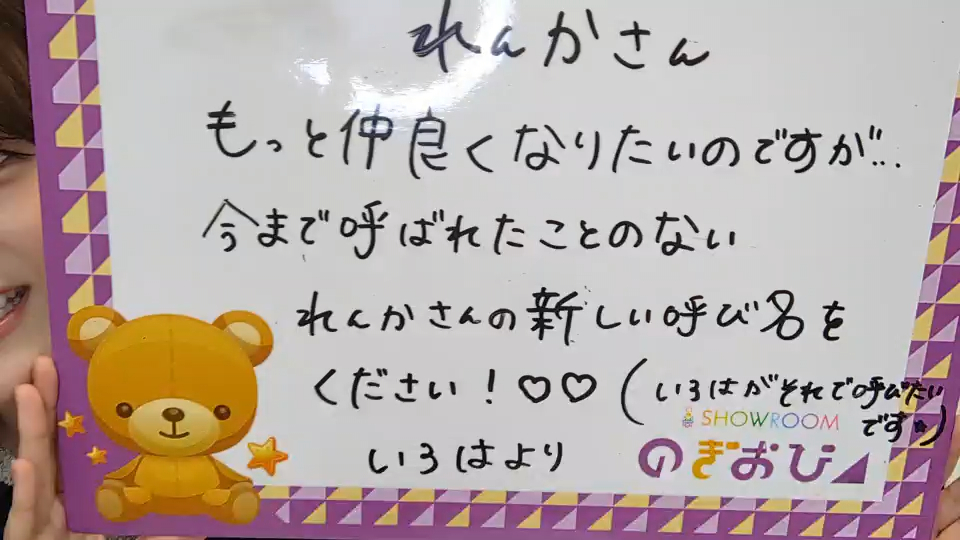 れんかさん
もっと仲良くなりたいのですが...
今まで呼ばれたことのない
れんかさんの新しい呼び名を
ください!♡♡(いろはがそれで呼びたい
です☆)
SHOWROOM
いろはより
のぎおび